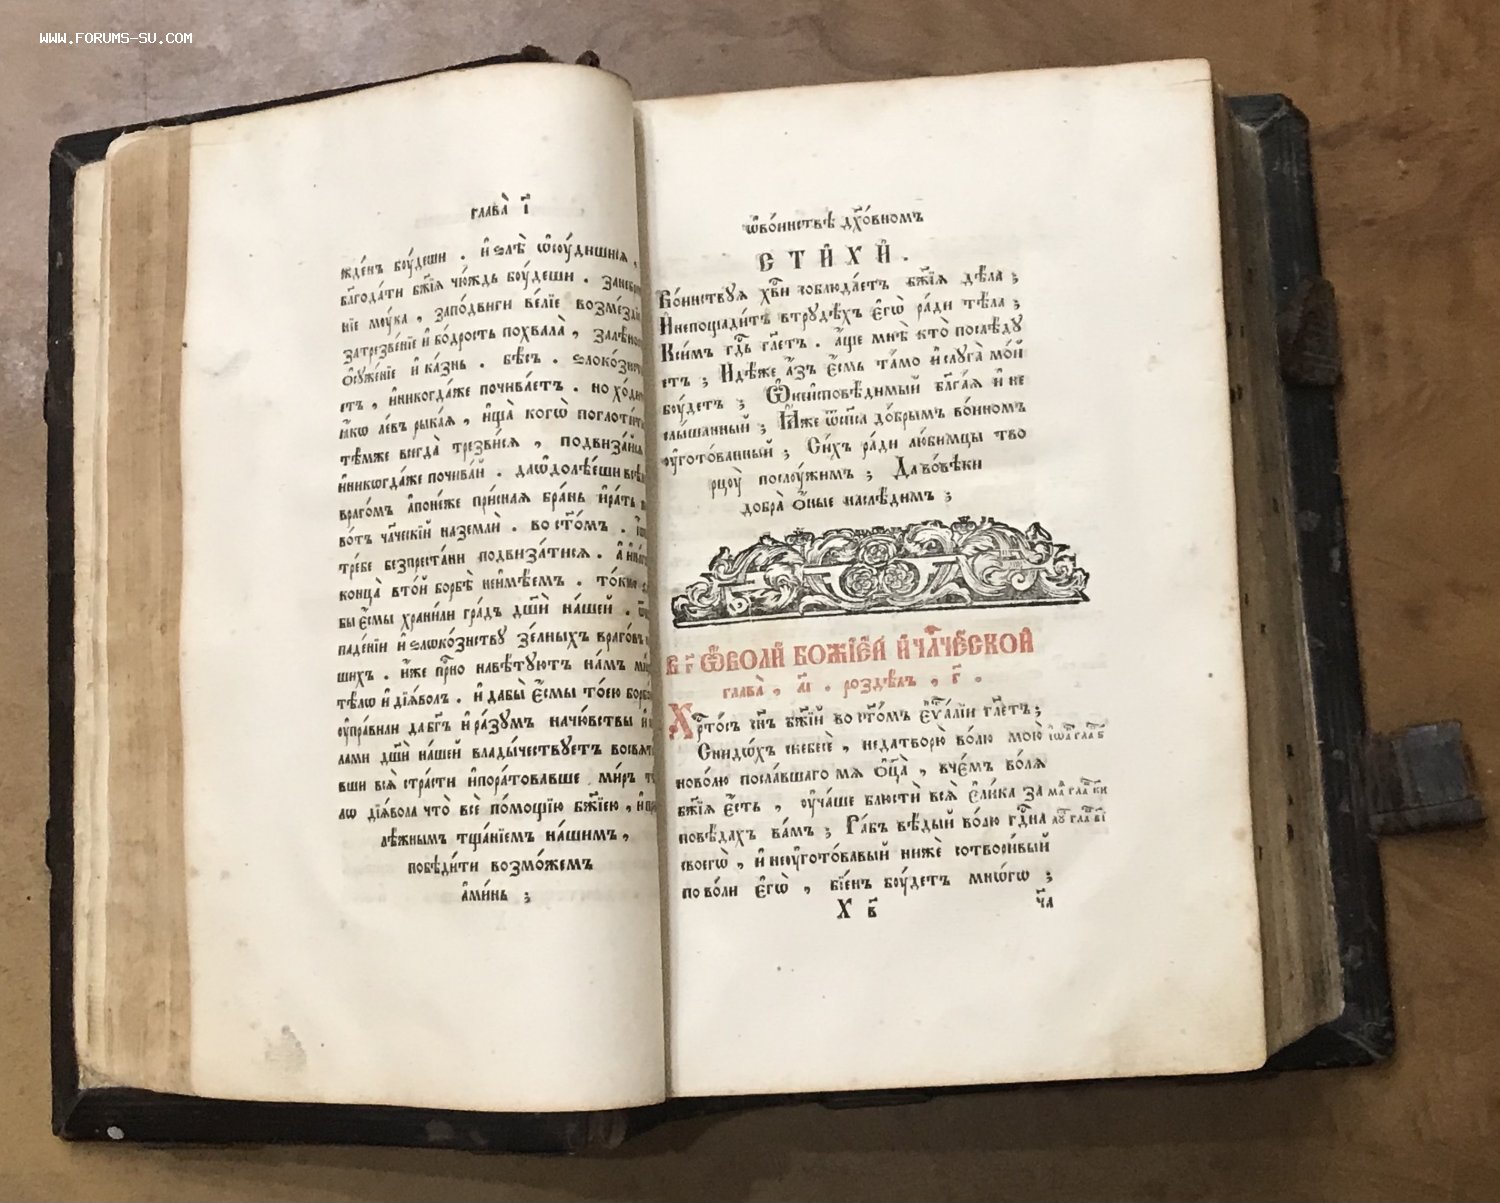 WWW.FORUMS-SU.COM
глава̀ і҃
жде́нъ бꙋ́деши . и҆ ѕлѣ̀ ѡ҆сꙋ́дишися ,
блгода́ти бж҃їѧ чю́ждь бꙋ́деши .
нїе мꙋ́ка , заподвиги ве́лїе возме́здїе
затрезве́нїе и҆ бо́дрость похвала̀ ,
ѻ҆сꙋже́нїе и҆ ка́знь . бѣ́съ .
етъ , и҆никогда́же почива́етъ . но
ꙗ҆́кѡ ле́въ рыка́ѧ , и҆ща̀ когѡ̀
тѣ́мже всегда̀ трезви́сѧ , подвиза́йсѧ
и҆никѡгда́же почива́й . даѡ҆долѣ́еши
враго́мъ а҆поне́же при́снаѧ бра́нь
во́тъ чл҃ческїй наземлѝ . во ст҃о́мъ .
тре́бе безпреста́ни подвиза́тисѧ .
конца̀ вто́й борбѣ̀ неи҆мѣ́емъ .
бы є҆смы̀ храни́ли гра́дъ дш҃и на́шей .
паде́нїи и҆ ѕлѡко́знству зе́лныхъ враго́въ
шихъ . и҆́же при́сно навѣ́туютъ на́мъ
тѣ́лѡ и҆ дїа́волъ . и҆ дабы̀ є҆смы̀ то́ею
ᲂу҆пра́вили да бг҃ъ и҆ ра́зумъ начю́вствы
лами дш҃и на́шей влады́чествуетъ
вши всѧ̀ стра́сти и҆поратовавше ми́ръ
лѡ дїа́вола что̀ всѐ по́мощїю бж҃їею ,
лѣ́жнымъ тща́нїемъ на́шимъ ,
побѣди́ти возмо́жемъ
а҆ми́нь ;
ѡ҆во́инствѣ дх҃о́вномъ
СТИХИ .
Во́инствуѧ хв҃и соблюда́етъ бж҃їѧ дѣ́ла ;
И҆непощади́тъ втрудѣ́хъ є҆гѡ̀ ра́ди тѣ́ла ;
Кси́мъ гд҃ь гл҃етъ . а҆́ще мнѣ̀ кто̀ послѣ́ду
етъ ; И҆дѣ́же а҆́зъ є҆́смь та́мо и҆ слуга̀ мо́й
бꙋ́детъ ; Ѽ неи҆сповѣ́димый блг҃а́ѧ и҆ не
слы́шанный ; Ꙗ҆̀же ѿ сп҃са до́брымъ во́иномъ
ᲂу҆гото́ванный ; Си́хъ ра́ди люби́мцы тво
рцꙋ̀ послꙋ́жимъ ; Да во́вѣки
добра̀ ѻ҆́ные наслѣ́димъ ;
В҃ г҃ Ѡ҆ВОЛИ БОЖІЕЙ И҆ ЧЛ҃ЧЕСКОЙ
глава̀ , а҃і . роздѣ́лъ , г҃ .
Хр҃то́съ сн҃ъ бж҃їй во ст҃о́мъ є҆ѵⷢ҇а́лїи гл҃етъ ;
Снидо́хъ снебесѐ , недатворю̀ во́лю мою̀
но во́лю посла́вшаго мѧ ѻ҆ц҃а̀ , вче́мъ во́лѧ
бж҃їѧ є҆́сть , ᲂу҆ча́ше блюстѝ всѧ̀ є҆ли́ка за
повѣ́дахъ ва́мъ ; Ра́бъ вѣ́дый во́лю гд҃на
своегѡ̀ , и҆ неᲂу҆гото́вавый нижѐ сотвори́вый
по во́ли є҆гѡ̀ , бїе́нъ бꙋ́детъ мнѡ́гѡ ;
Х в҃
ча